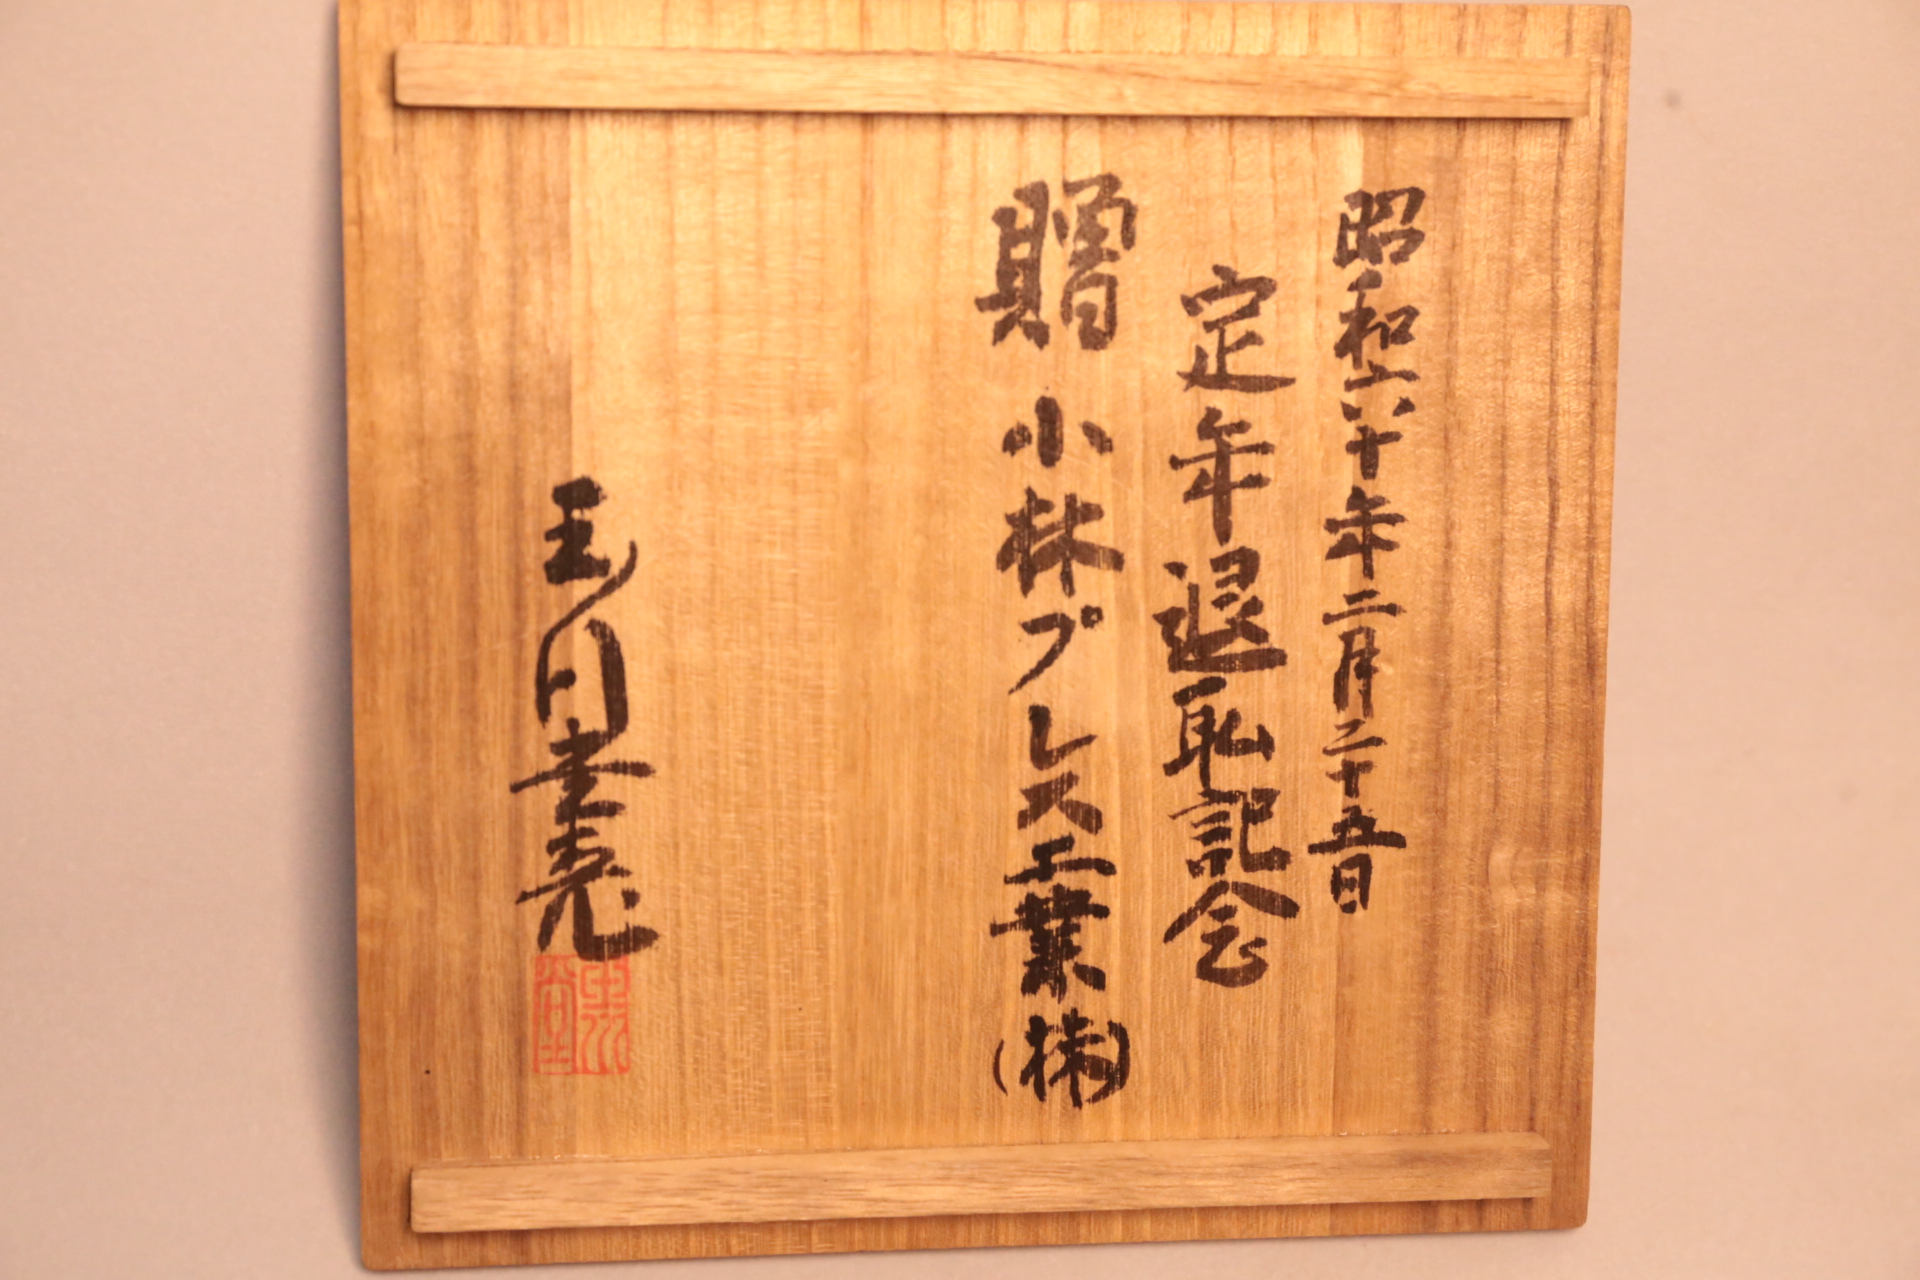 昭和六十年二月二十五日
定年退耺記念
贈 小林プレス工業(株)
玉川堂